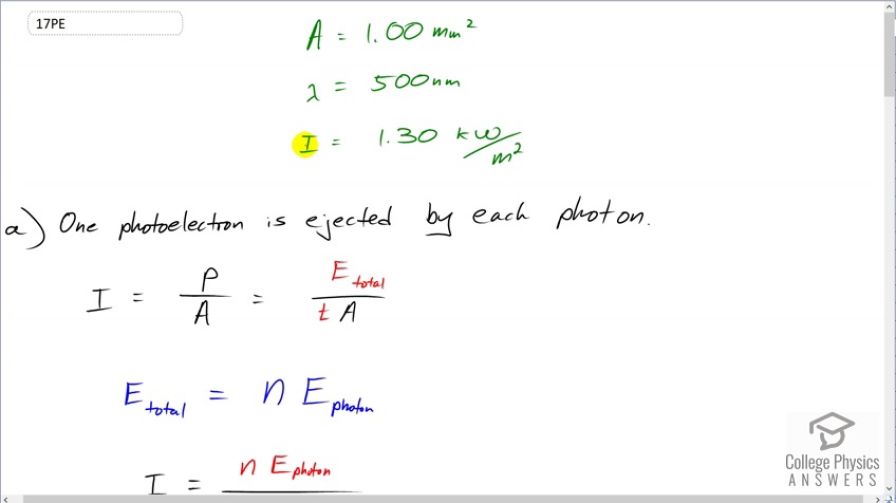 17PE
A = 1.00 mm²
λ = 500nm
I = 1.30 kW/m²
a) One photoelectron is ejected by each photon.
I = P/A = E total / t A
E total = n E photon
I = n E photon
College Physics
ANSWERS